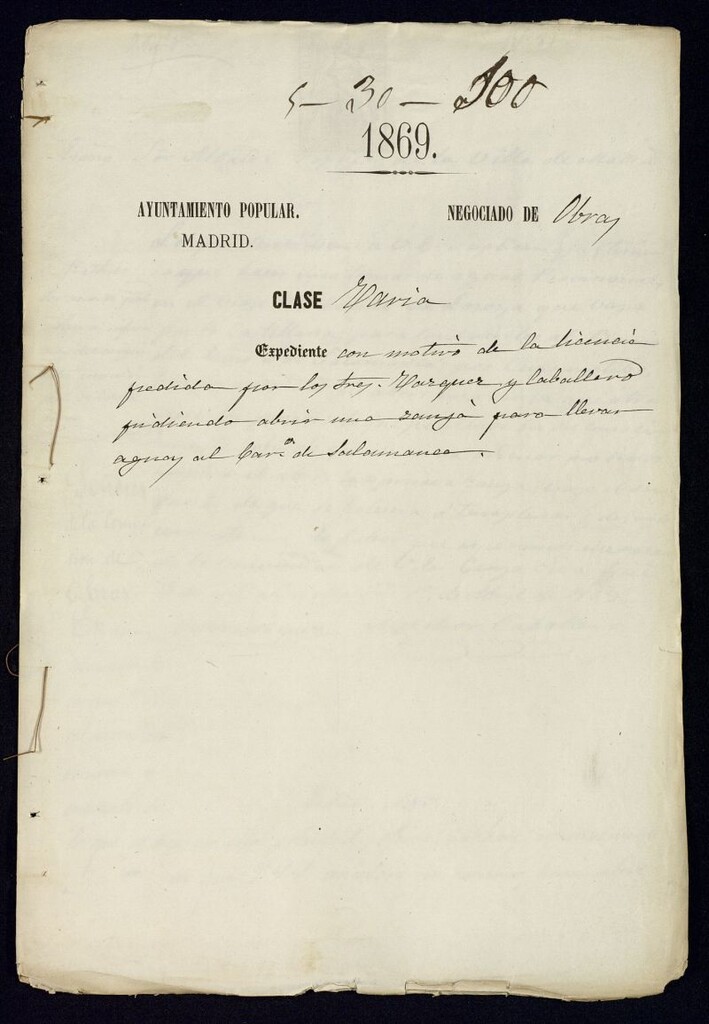 5 - 30 - 100
1869.
AYUNTAMIENTO POPULAR.
MADRID.
NEGOCIADO DE Obras
CLASE Varia
Expediente con motivo de la licencia
pedida por los Sres. Vazquez y Caballero
pidiendo abrir una zanja para llevar
aguas al Barº. de Salamanca.